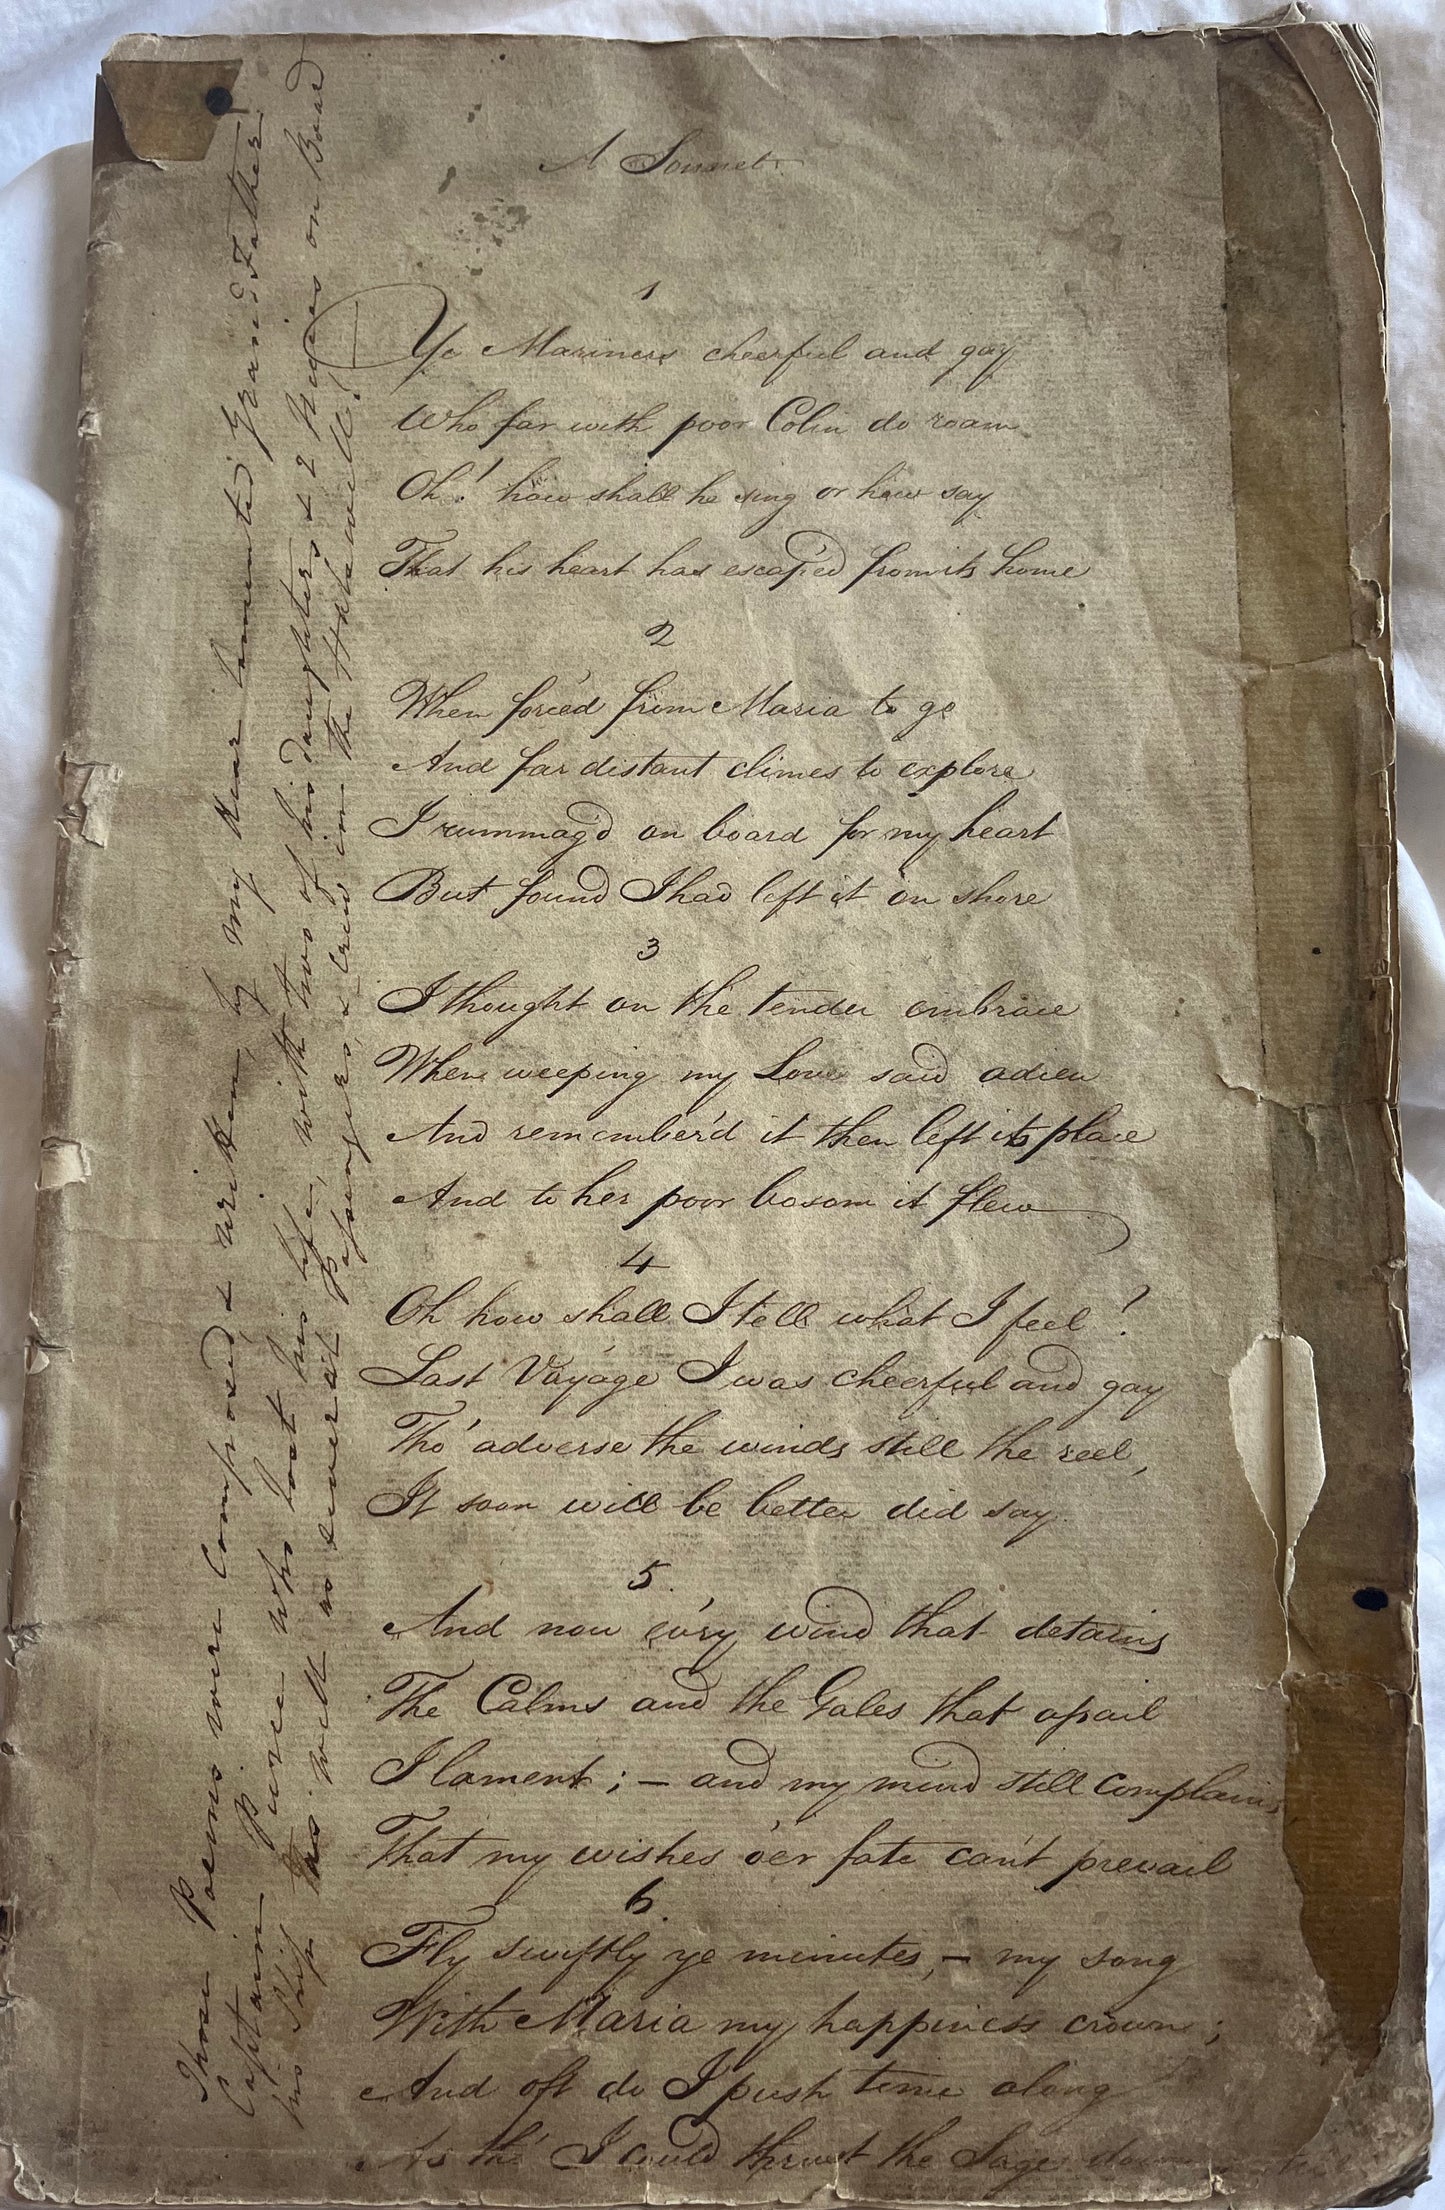 A Sonnet.
1
Ye Mariners cheerful and gay
Who far with poor Colin do roam
Oh! how shall he sing or how say
That his heart has escap'd from its home
2
When forc'd from Maria to go
And far distant climes to explore
I rummag'd on board for my heart
But found I had left it on shore
3
I thought on the tender embrace
When weeping my Love said adieu
And remember'd it then left its place
And to her poor bosom it flew
4
Oh how shall I tell what I feel?
Last Voyage I was cheerful and gay
Tho' adverse the winds still the reel,
It soon will be better did say
5.
And now ev'ry wind that detains
The Calms and the Gales that assail
I lament; – and my mind still complains,
That my wishes o'er fate can't prevail
6.
Fly swiftly ye minutes, – my song
With Maria my happiness crown;
And oft do I push time along
As tho' I could thrust the Sage down
These Poems were Composed & written, by my dear lamented Grand Father
Captain Pierce who lost his life, with two of his daughters & 2 Nieces on Board
his Ship as well as several Passengers, & Crew in the Halsewell!